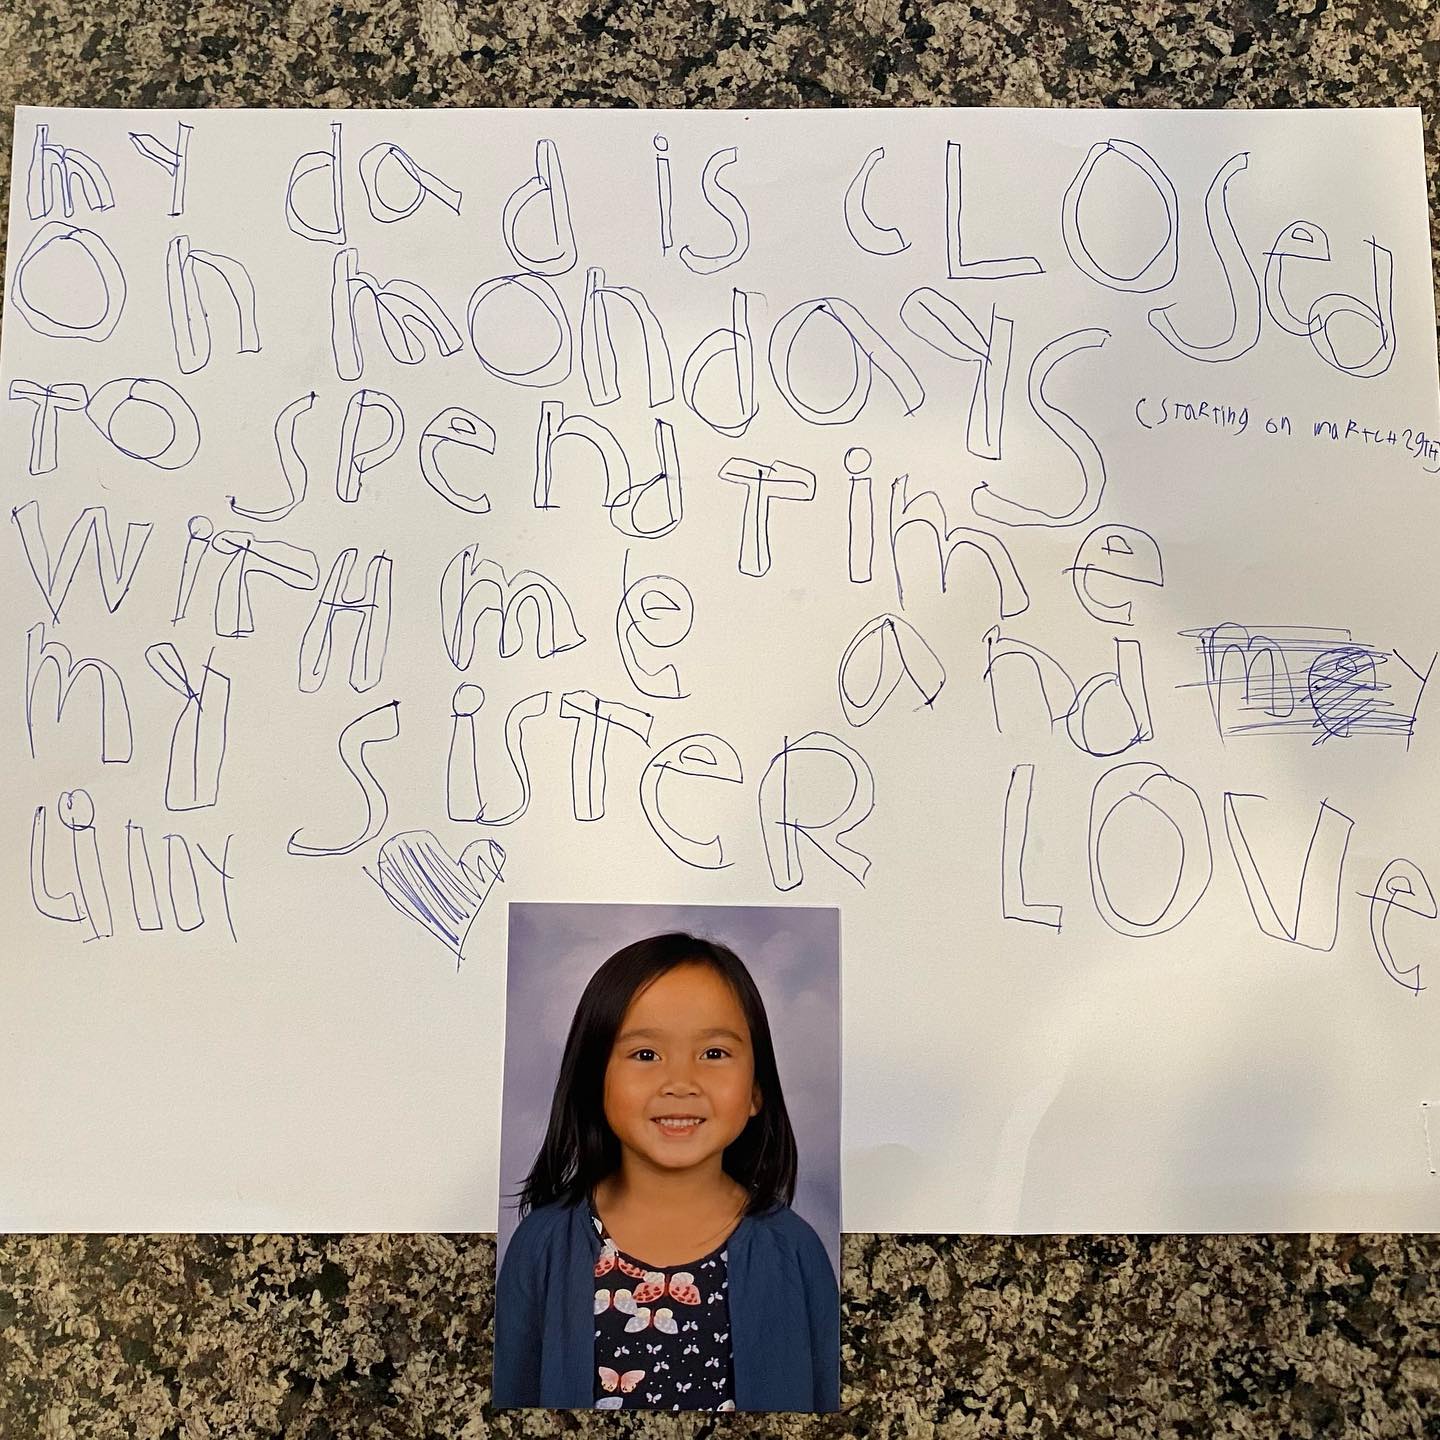 my dad is cLOSed
On mondayS
(STaRTing on maRTCH 29TH)
TO SPend Time
WiTH me and
my SiSTeR LOVe
Lilly